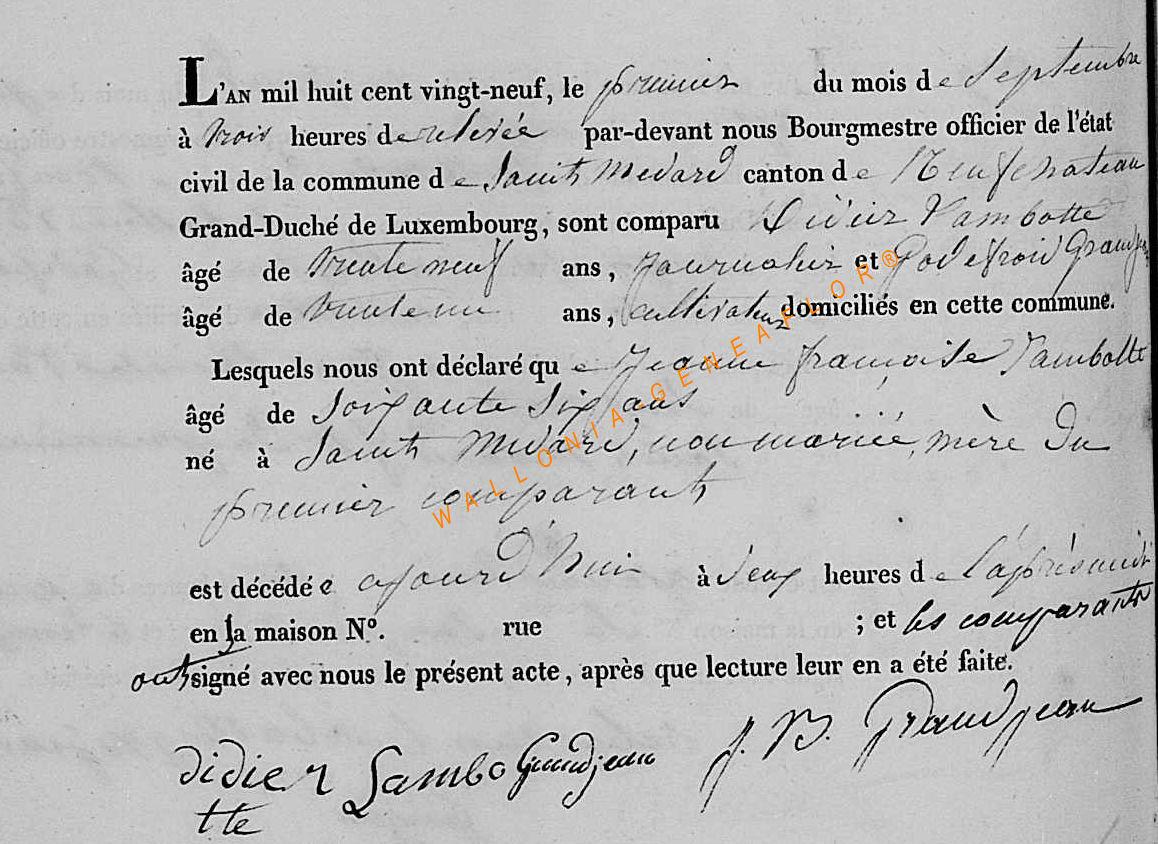 L'AN mil huit cent vingt-neuf, le premier du mois de Septembre
à trois heures de relevée par-devant nous Bourgmestre officier de l'état
civil de la commune de Saint Medard canton de Neufchateau
Grand-Duché de Luxembourg, sont comparu Didier Lambotte
âgé de trente neuf ans, journalier et Godefroid Grandjean
âgé de trente un ans, cultivateur domiciliés en cette commune.
Lesquels nous ont déclaré que Jeanne françoise Lambotte
âgé de soixante six ans
né à Saint Médard, non mariée, mère du
premier comparant
est décédée ajourd'hui à deux heures de l'aprèsmidi
en sa maison N°. rue ; et les comparants
ont signé avec nous le présent acte, après que lecture leur en a été faite.
didier Lambo Grandjean J. B. Grandjean
tte
WALLONIA-GENEAFLOR®